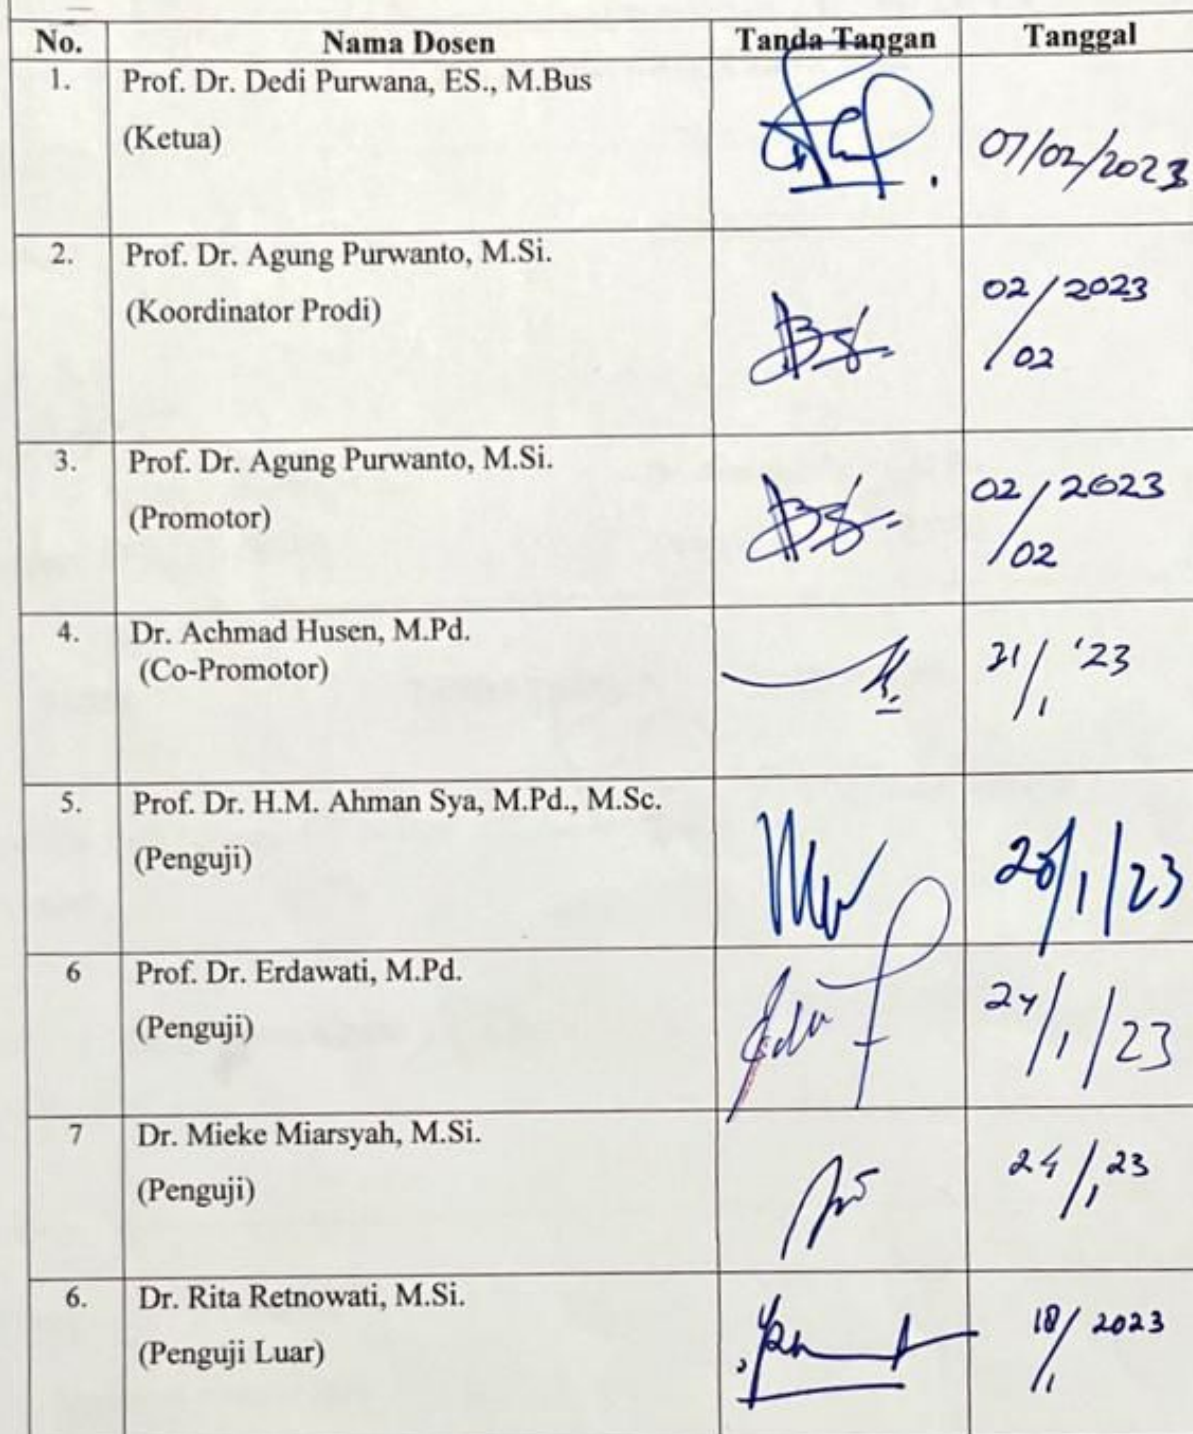 No. Nama Dosen Tanda Tangan Tanggal
1. Prof. Dr. Dedi Purwana, ES., M.Bus
(Ketua) 07/02/2023
2. Prof. Dr. Agung Purwanto, M.Si.
(Koordinator Prodi) 02/2023
/02
3. Prof. Dr. Agung Purwanto, M.Si.
(Promotor) 02/2023
/02
4. Dr. Achmad Husen, M.Pd.
(Co-Promotor) 31/1 '23
5. Prof. Dr. H.M. Ahman Sya, M.Pd., M.Sc.
(Penguji) /1/23
6 Prof. Dr. Erdawati, M.Pd.
(Penguji) 24/1/23
7 Dr. Mieke Miarsyah, M.Si.
(Penguji) 24/1 23
6. Dr. Rita Retnowati, M.Si.
(Penguji Luar) 18/1 2023